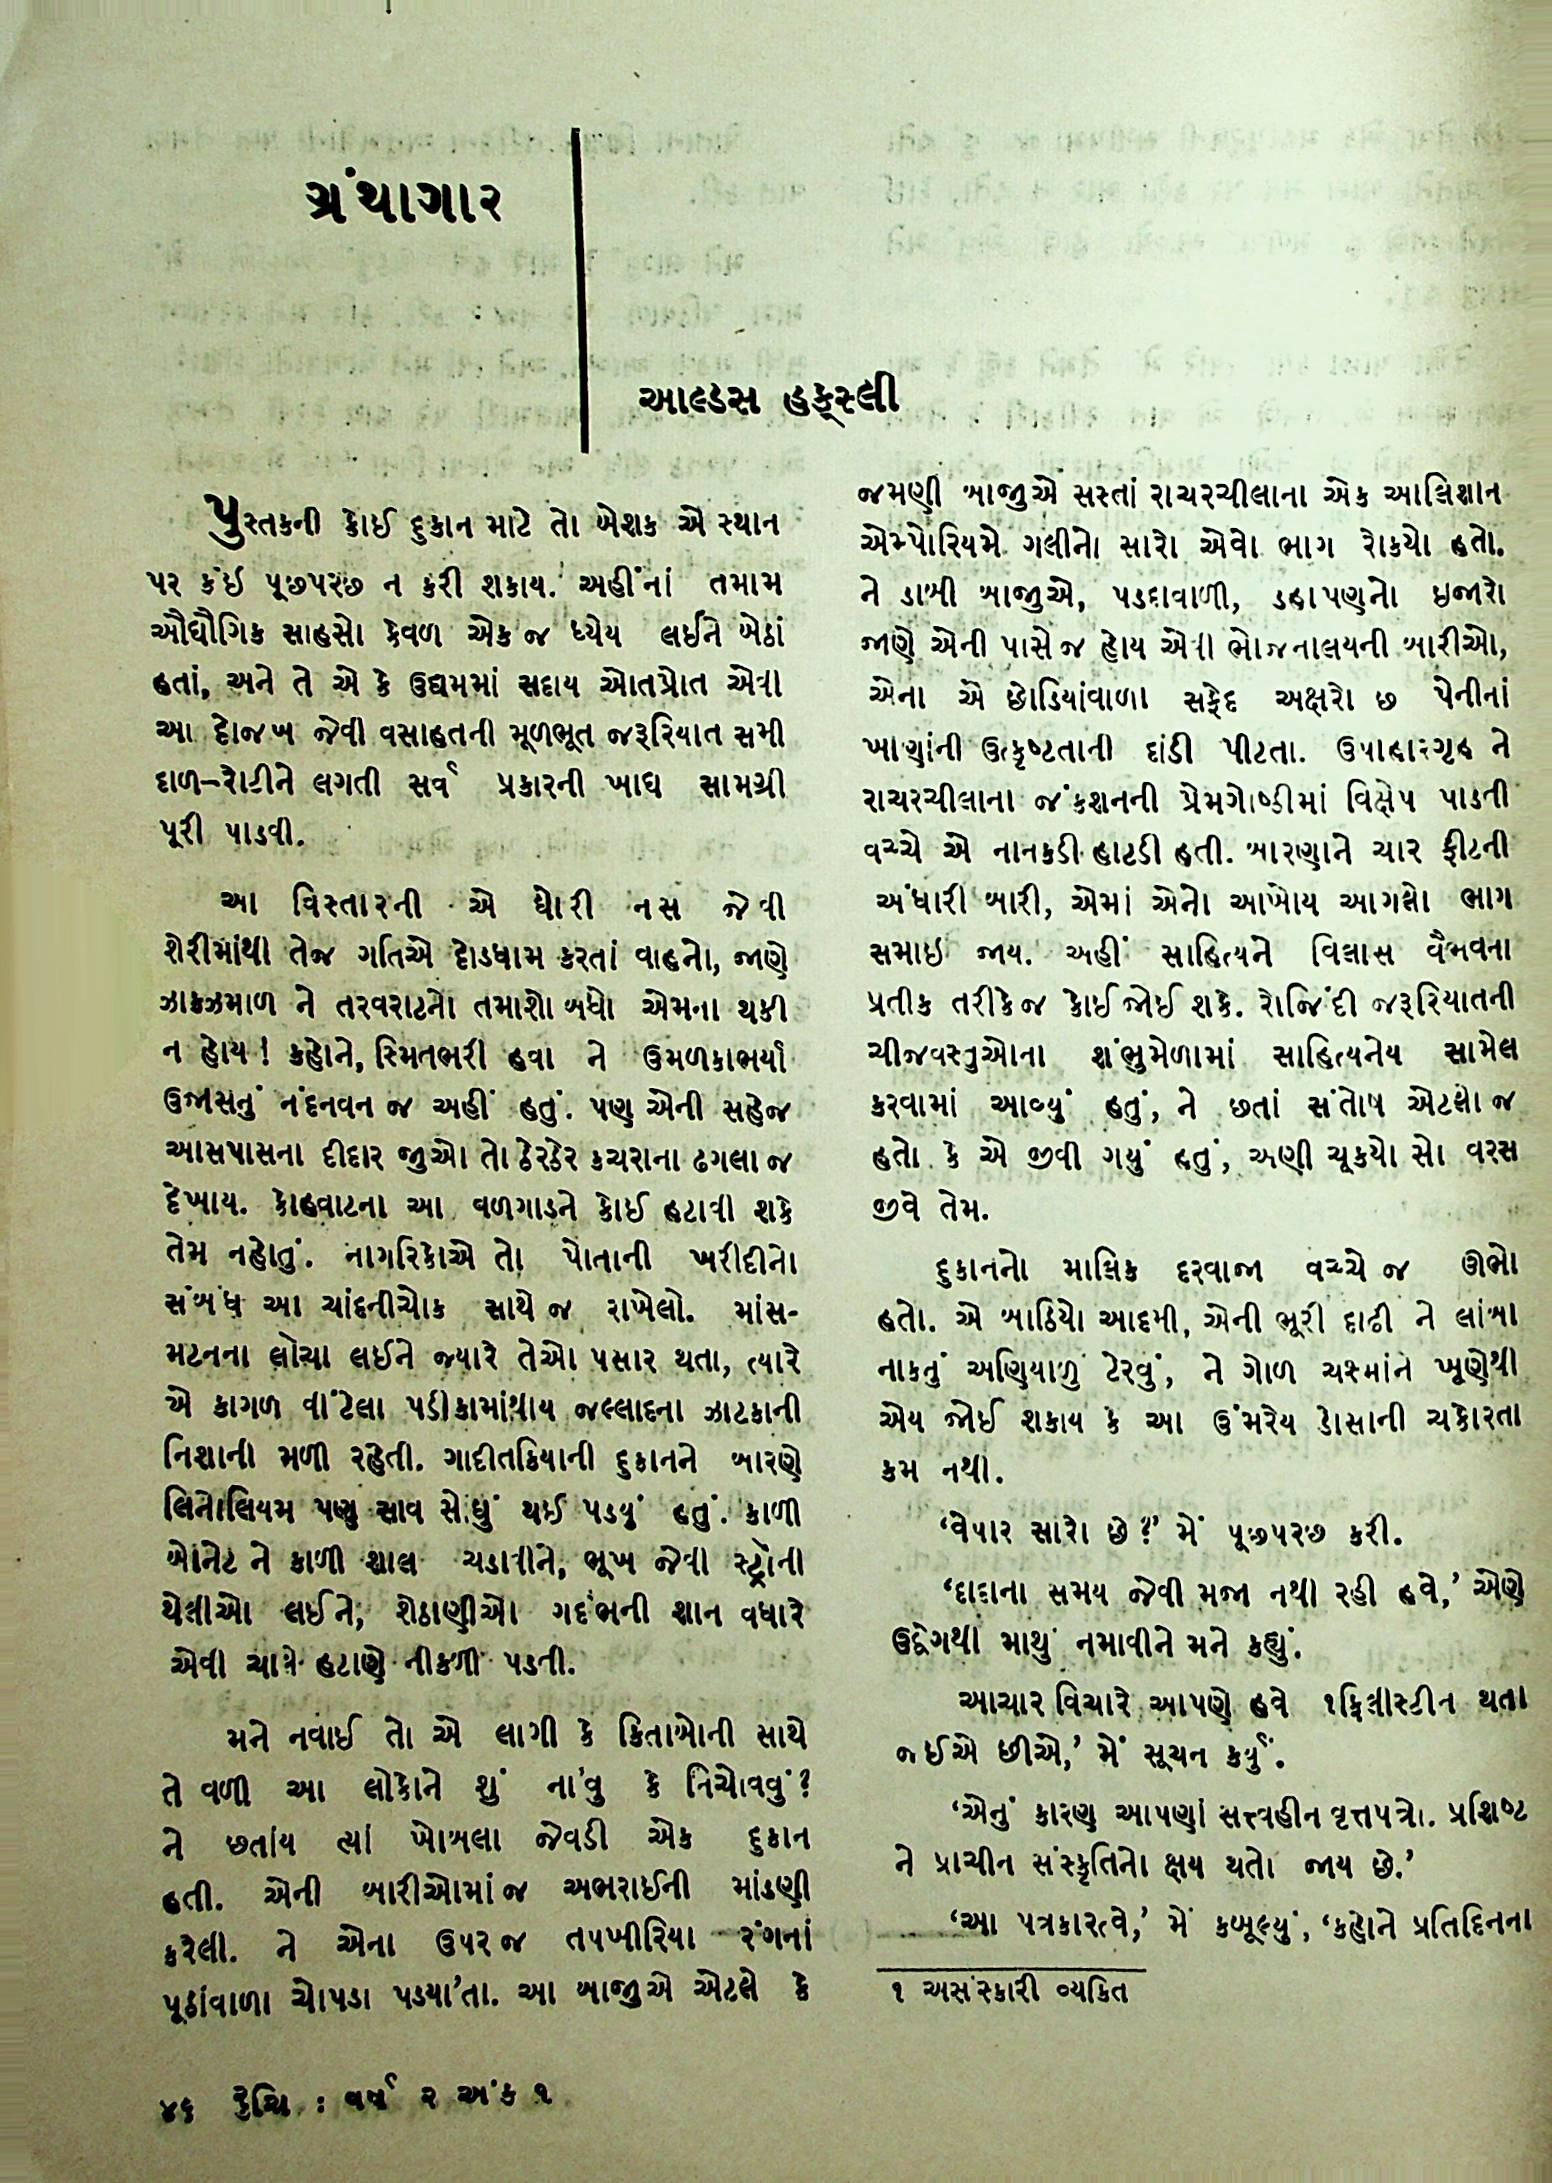 ગ્રંથાગાર
આલ્ડસ હક્સ્લી
પુસ્તકની કોઈ દુકાન માટે તો બેશક એ સ્થાન
પર કંઈ પૂછપરછ ન કરી શકાય. અહીંનાં તમામ
ઔદ્યૌગિક સાહસો કેવળ એક જ ધ્યેય લઈને બેઠાં
હતાં, અને તે એ કે ઉદ્યમમાં સદાય ઓતપ્રોત એવી
આ દોજખ જેવી વસાહતની મૂળભૂત જરૂરિયાત સમી
દાળ-રોટીને લગતી સર્વ પ્રકારની ખાદ્ય સામગ્રી
પૂરી પાડવી.
આ વિસ્તારની એ ધોરી નસ જેવી
શેરીમાંથી તેજ ગતિએ દોડધામ કરતાં વાહનો, જાણે
ઝાકઝમાળ ને તરવરાટનો તમાશો બધો એમના થકી
ન હોય! કહોને, સ્મિતભરી હવા ને ઉમળકાભર્યા
ઉજાસનું નંદનવન જ અહીં હતું. પણ એની સહેજ
આસપાસના દીદાર જુઓ તો ઠેરઠેર કચરાના ઢગલા જ
દેખાય. કોહવાટના આ વળગાડને કોઈ હટાવી શકે
તેમ નહોતું. નાગરિકોએ તો પોતાની ખરીદીનો
સંબંધ આ ચાંદનીચોક સાથે જ રાખેલો. માંસ-
મટનના લોચા લઈને જ્યારે તેઓ પસાર થતા, ત્યારે
એ કાગળ વીંટેલા પડીકામાંથાય જલ્લાદના ઝાટકાની
નિશાની મળી રહેતી. ગાદીતકિયાની દુકાનને બારણે
લિનોલિયમ પણ સાવ સોંઘું થઈ પડયું હતું. કાળી
બોનેટ ને કાળી શાલ ચડાવીને, ભૂખ જેવી સ્ટ્રૉની
થેલીઓ લઈને, શેઠાણીઓ ગર્દભની શાન વધારે
એવી ચાલે હટાણે નીકળી પડતી.
મને નવાઈ તો એ લાગી કે કિતાબોની સાથે
તે વળી આ લોકોને શું ના'વુ કે નિચોવવું?
ને છતાંય ત્યાં ખોબલા જેવડી એક દુકાન
હતી. એની બારીઓમાં જ અભરાઈની માંડણી
કરેલી. ને એના ઉપર જ તપખીરિયા રંગનાં
પૂઠાંવાળા ચોપડા પડયા'તા. આ બાજુએ એટલે કે
જમણી બાજુએ સસ્તાં રાચરચીલાના એક આલિશાન
એમ્પોરિયમે ગલીનો સારો એવો ભાગ રોકયો હતો.
ને ડાબી બાજુએ, પડદાવાળી, ડહાપણનો ઇજારો
જાણે એની પાસે જ હોય એવી ભોજનાલયની બારીઓ,
એના એ છોડિયાંવાળા સફેદ અક્ષરો છ પેનીનાં
ખાણાંની ઉત્કૃષ્ટતાની દાંડી પીટતા. ઉપાહારગૃહ ને
રાચરચીલાના જંકશનની પ્રેમગોષ્ઠીમાં વિક્ષેપ પાડતી
વચ્ચે એ નાનકડી હાટડી હતી. બારણાને ચાર ફીટની
અંધારી બારી, એમાં એનો આખોય આગલો ભાગ
સમાઇ જાય. અહીં સાહિત્યને વિલાસ વૈભવના
પ્રતીક તરીકેજ કોઈ જોઈ શકે. રોજિંદી જરૂરિયાતની
ચીજવસ્તુઓના શંભુમેળામાં સાહિત્યનેય સામેલ
કરવામાં આવ્યું હતું, ને છતાં સંતોષ એટલો જ
હતો કે એ જીવી ગયું હતું, અણી ચૂકયો સો વરસ
જીવે તેમ.
દુકાનનો માલિક દરવાજા વચ્ચે જ ઊભો
હતો. એ બાઠિયો આદમી, એની ભૂરી દાઢી ને લાંબા
નાકનું અણિયાળું ટેરવું, ને ગોળ ચશ્માંને ખૂણેથી
એય જોઈ શકાય કે આ ઉંમરેય ડોસાની ચકોરતા
કમ નથી.
'વેપાર સારો છે?' મેં પૂછપરછ કરી.
'દાદાના સમય જેવી મજા નથી રહી હવે,' એણે
ઉદ્વેગથી માથું નમાવીને મને કહ્યું.
આચાર વિચારે આપણે હવે ૧ફિલીસ્ટીન થતા
જઈએ છીએ,' મેં સૂચન કર્યું.
'એનું કારણ આપણાં સત્ત્વહીન વૃત્તપત્રો. પ્રશિષ્ટ
ને પ્રાચીન સંસ્કૃતિનો ક્ષય થતો જાય છે.'
'આ પત્રકારત્વે,' મેં કબૂલ્યું, 'કહોને પ્રતિદિનના
૧ અસંસ્કારી વ્યકિત
૪૬ રુચિ : વર્ષ ૨ અંક ૧